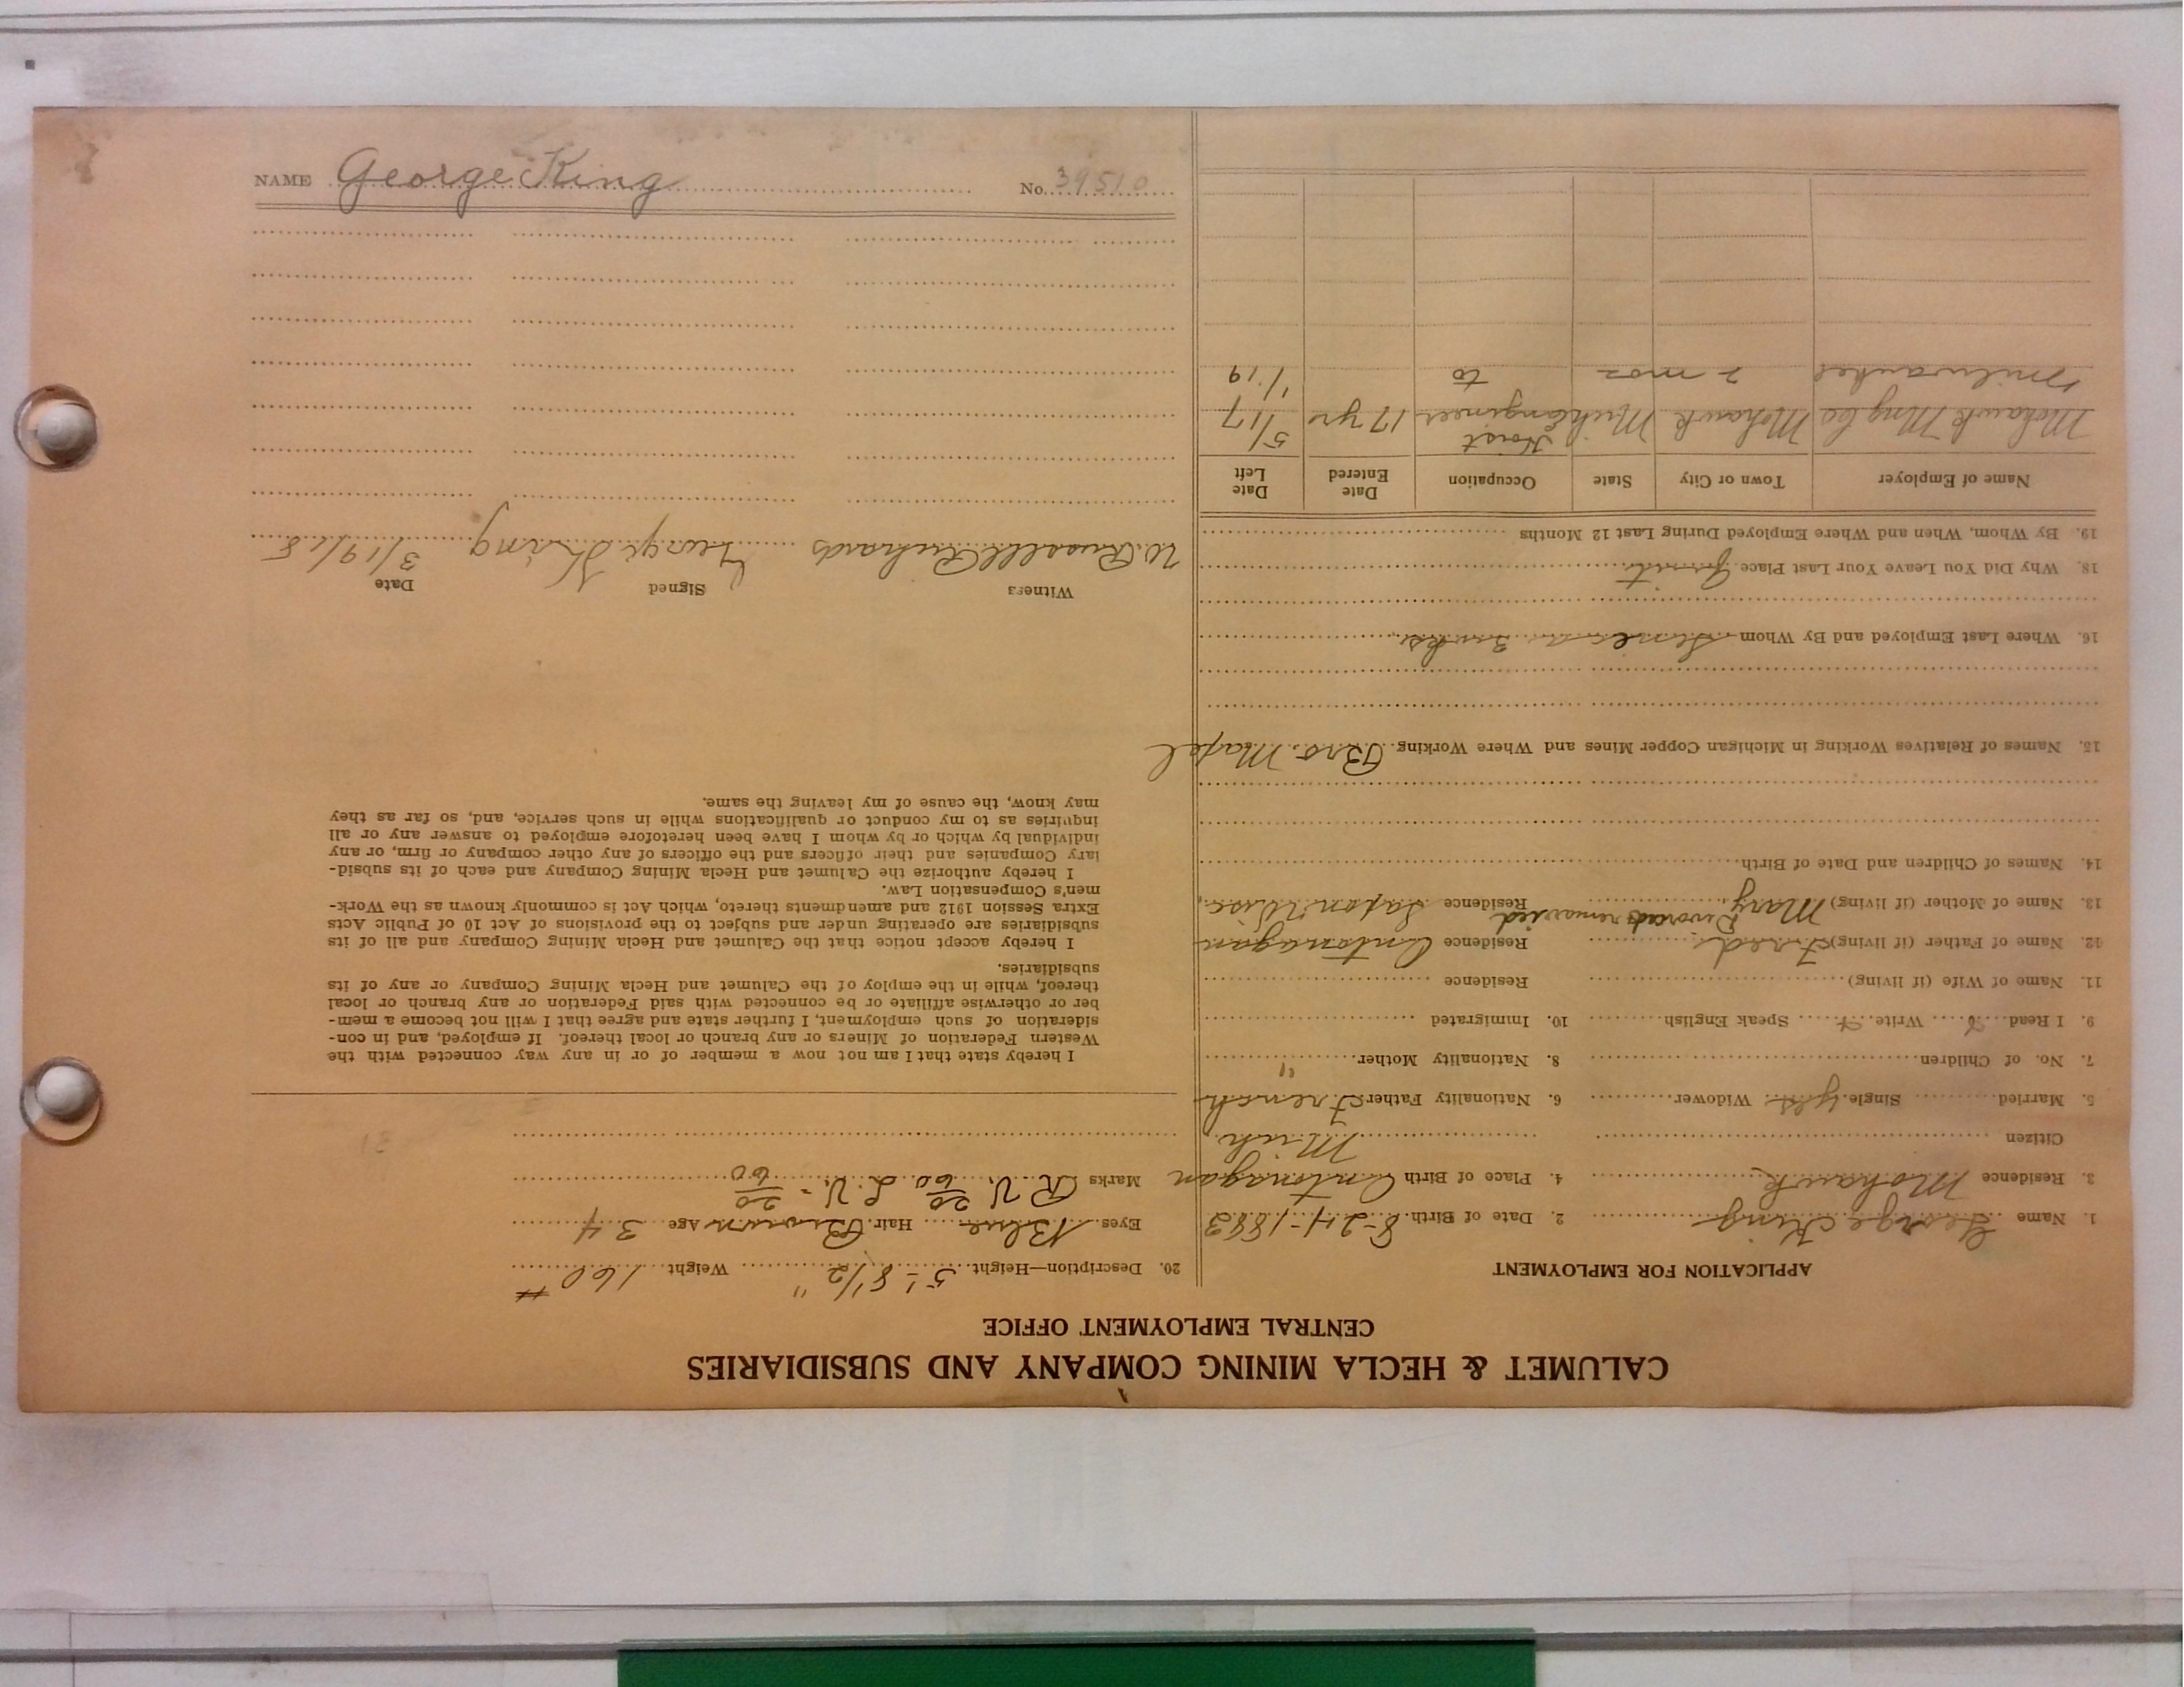 NAME George King No. 39510
CALUMET & HECLA MINING COMPANY AND SUBSIDIARIES
CENTRAL EMPLOYMENT OFFICE
APPLICATION FOR EMPLOYMENT
1. Name George King 2. Date of Birth 8-24-1883
3. Residence Mohawk 4. Place of Birth Ontonagan
Citizen Mich.
5. Married Single yes Widower 6. Nationality Father French
7. No. of Children 8. Nationality Mother "
9. I Read Write Speak English 10. Immigrated
11. Name of Wife (if living) Residence
12. Name of Father (if living) Fred. Residence Ontonagan
Divorced remarried
13. Name of Mother (if living) Mary Residence Wisc.
14. Names of Children and Date of Birth
15. Names of Relatives Working in Michigan Copper Mines and Where Working Bro.
16. Where Last Employed and By Whom
18. Why Did You Leave Your Last Place Quit
19. By Whom, When and Where Employed During Last 12 Months
Name of Employer Town or City State Occupation Date Entered Date Left
Mohawk Mng Co Mohawk Mich Hoist Engineer 17 yr 5/17
Milwaukee 2 mos to 1/19
20. Description—Height 5'-8 1/2" Weight 160 #
Eyes Blue Hair Brown Age 34
Marks R.V. 20/60 L.V. - 20/60
I hereby state that I am not now a member of or in any way connected with the
Western Federation of Miners or any branch or local thereof. If employed, and in con-
sideration of such employment, I further state and agree that I will not become a mem-
ber or otherwise affiliate or be connected with said Federation or any branch or local
thereof, while in the employ of the Calumet and Hecla Mining Company or any of its
subsidiaries.
I hereby accept notice that the Calumet and Hecla Mining Company and all of its
subsidiaries are operating under and subject to the provisions of Act 10 of Public Acts
Extra Session 1912 and amendments thereto, which Act is commonly known as the Work-
men's Compensation Law.
I hereby authorize the Calumet and Hecla Mining Company and each of its subsid-
iary Companies and their officers and the officers of any other company or firm, or any
individual by which or by whom I have been heretofore employed to answer any or all
inquiries as to my conduct or qualifications while in such service, and, so far as they
may know, the cause of my leaving the same.
Witness Signed Date
W. Russell Richards George King 3/19/18